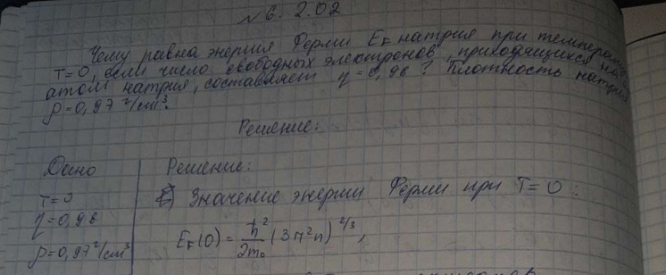 № 6. 2.02
Чему равна энергия Ферми E_F натрия при температуре
T=0, если число свободных электронов, приходящихся на
атом натрия, составляет η=0,98? Плотность натрия
ρ=0,97 г/см³.
Решение:
Дано
Решение:
T=0
Значение энергии Ферми при T=0:
η=0,98
E_F(0) = ħ²/2m₀ (3π²n)^2/3,
ρ=0,97 г/см³